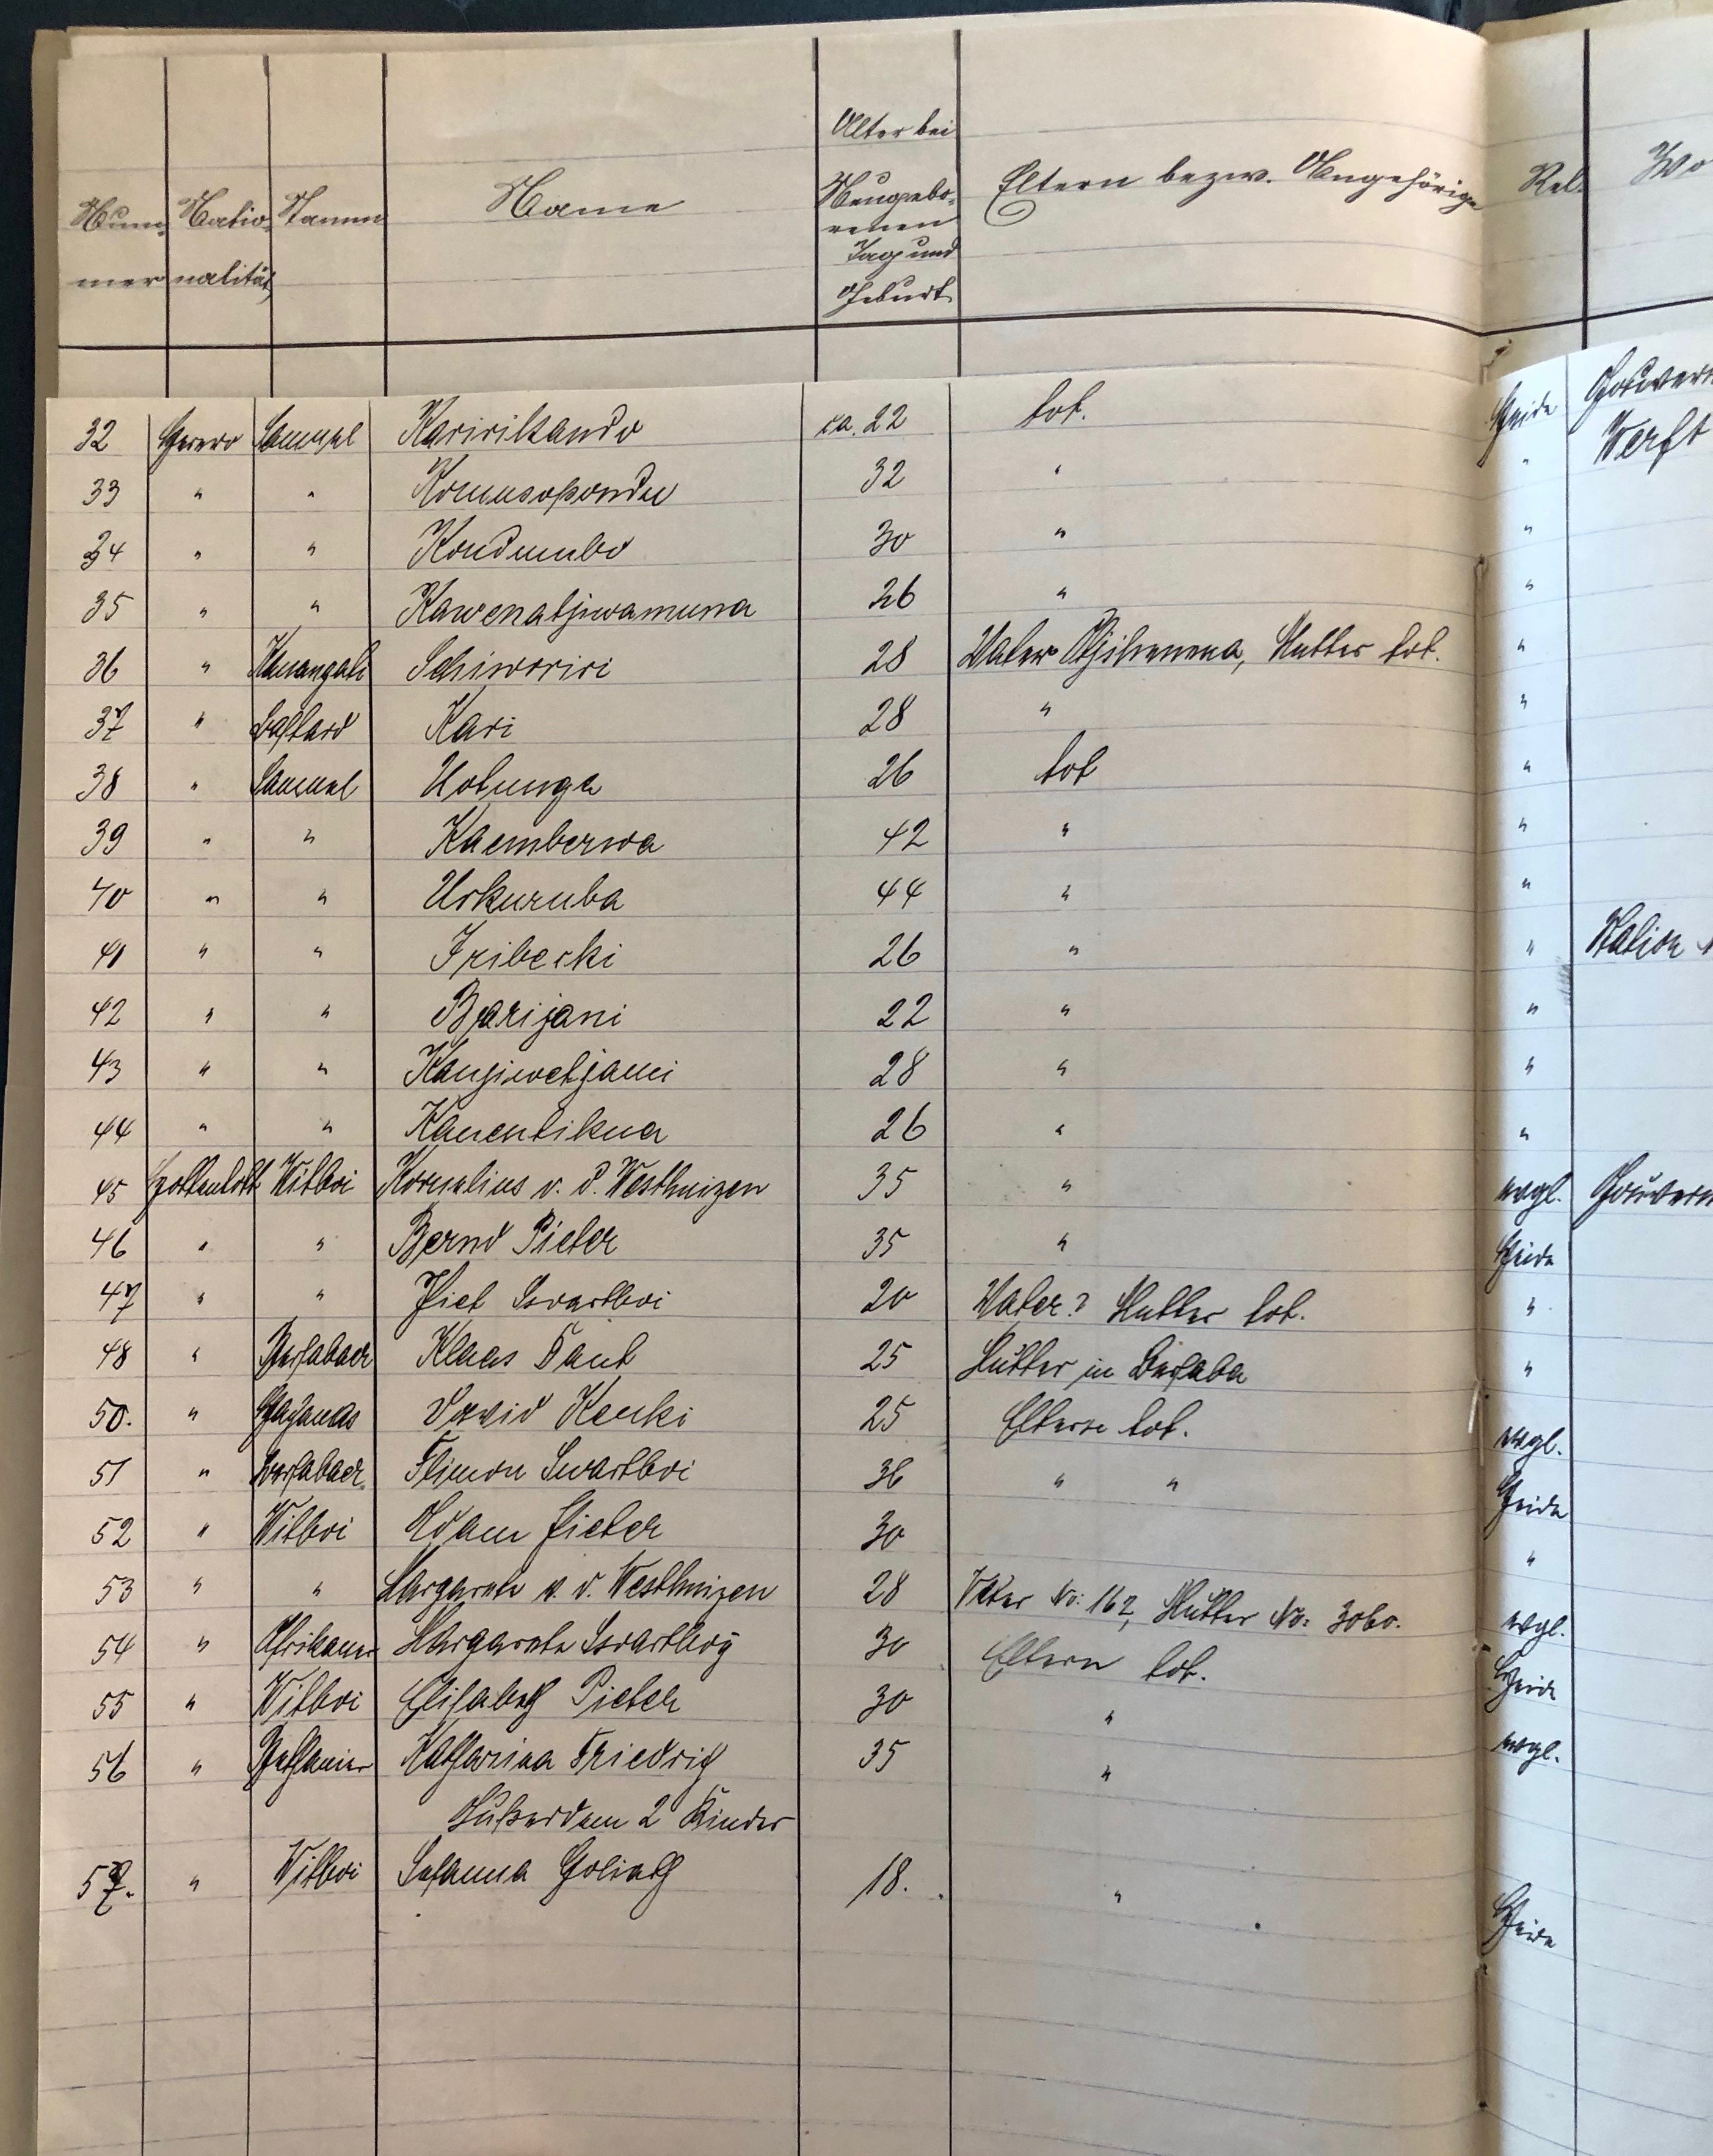 Num- Natio- Stamm Name Alter bei Eltern bezw. Angehörige Rel. Wo
mer nalität Neugebo-
renen
Tag und
Geburt
32 Herero Samuel Karirikando ca. 22 tot. Heide Gouvern
33 " " Komusopondu 32 " " Werft
34 " " Kondumbo 30 " "
35 " " Kawenatjiwamuna 26 " "
36 " Schiworiri 28 Vater Mutter tot. "
37 " Bastard Kari 28 " "
38 " Samuel Uotunga 26 tot "
39 " " Kaemberwa 42 " "
40 " " Uskuruba 44 " "
41 " " Iribecki 26 " "
42 " " Barijani 22 " "
43 " " 28 " "
44 " " 26 " "
45 Hottentott Witboi Kornelius v. d. Westhuizen 35 " evgl. Gouvern
46 " " Bernd Pieter 35 " Heide
47 " " Piet Swartboi 20 Vater? Mutter tot. "
48 " Bersabaer Klaas Paul 25 Mutter in Bersaba "
50. " David 25 Eltern tot. evgl.
51 " Bersabaer. Filimon Swartboi 36 " " Heide
52 " Witboi Adam Pieter 30 "
53 " " Margarete v. d. Westhuizen 28 Vater No: 162, Mutter No: 3060. evgl.
54 " Afrikaner Margarete Swartboy 30 Eltern tot. Heide
55 " Witboi Elisabeth Pieter 30 " evgl.
56 " Bethanier Katharina Friedrich 35 "
Außerdem 2 Kinder
57. " Witboi Susanna Goliath 18. " Heide